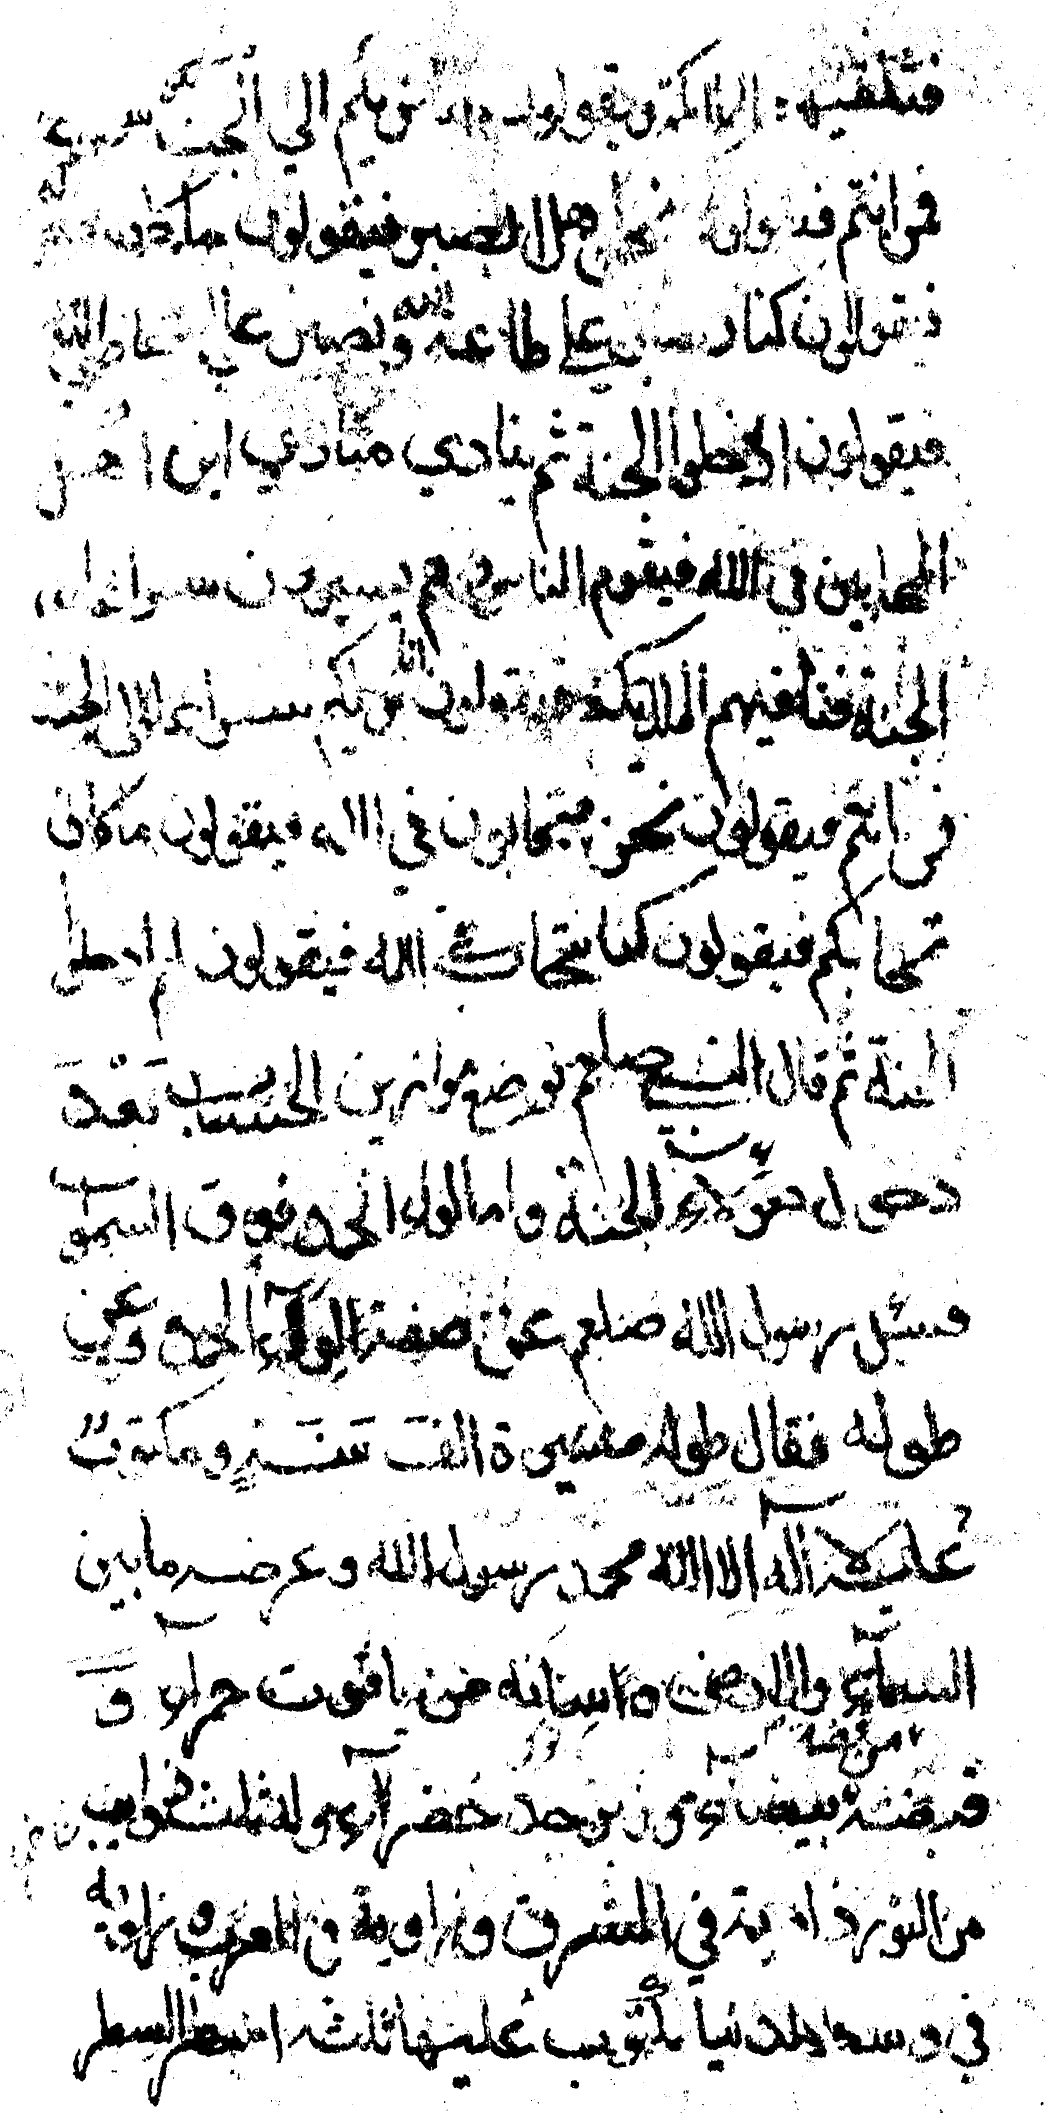 فتلقيهم الملائكة ويقولون انا نريكم الى الجنة سريعا
فمن انتم فيقولون نحن اهل الصبر فيقولون ما كان
فيقولون كنا نصبر على طاعة الله ونصبر على معاصي الله
فيقولون ادخلوا الجنة ثم ينادي منادي اين
المتحابين في الله فيقوم الناس وهم يسيرون سراعا
الجنة فتلقيهم الملائكة فيقولون انا نريكم سراعا الى الجنة
فمن انتم فيقولون نحن متحابون في الله فيقولون ما كان
تحابكم فيقولون كنا نتحاب في الله فيقولون لهم ادخلوا
الجنة ثم قال النبي صلعم توضع موازين الحساب بعد
دخول هؤلاء الجنة واما لواء الحمد فوق السموات
فسئل رسول الله صلعم عن صفة لواء الحمد وعن
طوله فقال طوله مسيرة الف سنة ومكتوب
عليه لا اله الا الله محمد رسول الله وعرضه ما بين
السماء والارض اسنانه من ياقوت حمراء و
من فضة
قبضته بيضاء وزبرجد خضراء وله ثلث ذوايب
من النور ذوابة في المشرق وزاوية في المغرب وزاوية
في وسط الدنيا مكتوب عليها ثلثة اسطر السطر